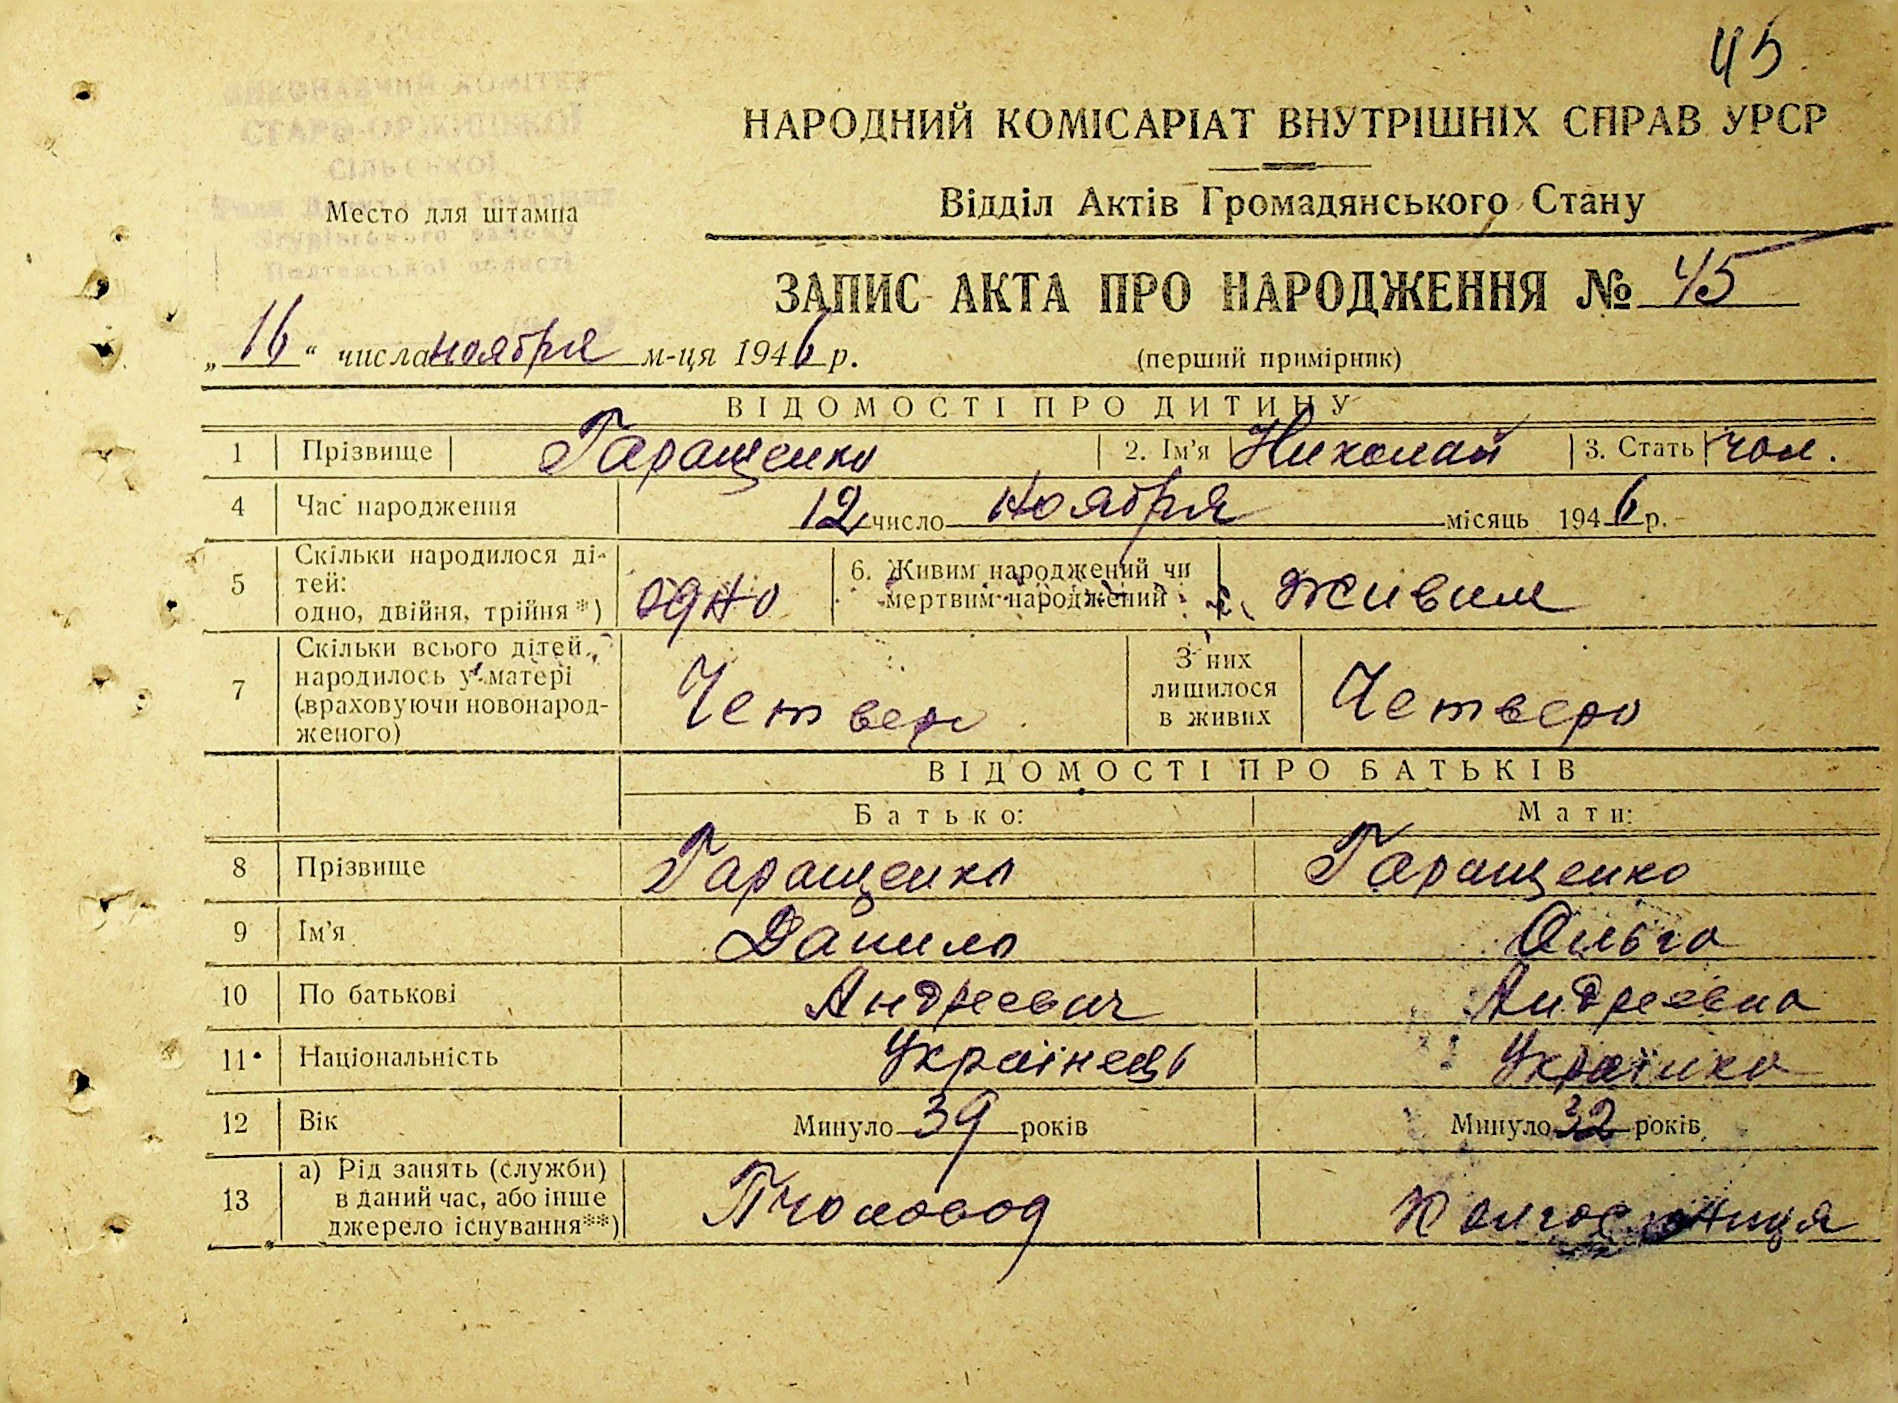 45
ВИКОНАВЧИЙ КОМІТЕТ
СТАРО-ОРЖИЦЬКОЇ
СІЛЬСЬКОЇ
Полтавської області
НАРОДНИЙ КОМІСАРІАТ ВНУТРІШНІХ СПРАВ УРСР
Відділ Актів Громадянського Стану
Место для штампа
ЗАПИС АКТА ПРО НАРОДЖЕННЯ № 45
„16“ числа ноября м-ця 1946 р.
(перший примірник)
ВІДОМОСТІ ПРО ДИТИНУ
1 Прізвище Гаращенко 2. Ім'я Николай 3. Стать чол.
4 Час народження 12 число ноября місяць 1946 р.
5 Скільки народилося ді-
тей:
одно, двійня, трійня*) одно
6. Живим народжений чи
мертвим народжений живим
7 Скільки всього дітей
народилось у матері
(враховуючи новонарод-
женого) Четверо
З них
лишилося
в живих Четверо
ВІДОМОСТІ ПРО БАТЬКІВ
Батько: Мати:
8 Прізвище Гаращенко Гаращенко
9 Ім'я Данило Ольга
10 По батькові Андреевич Андреевна
11 Національність Українець Українка
12 Вік Минуло 39 років Минуло 32 років
13 а) Рід занять (служби)
в даний час, або інше
джерело існування**) Пчоловод Колгоспниця